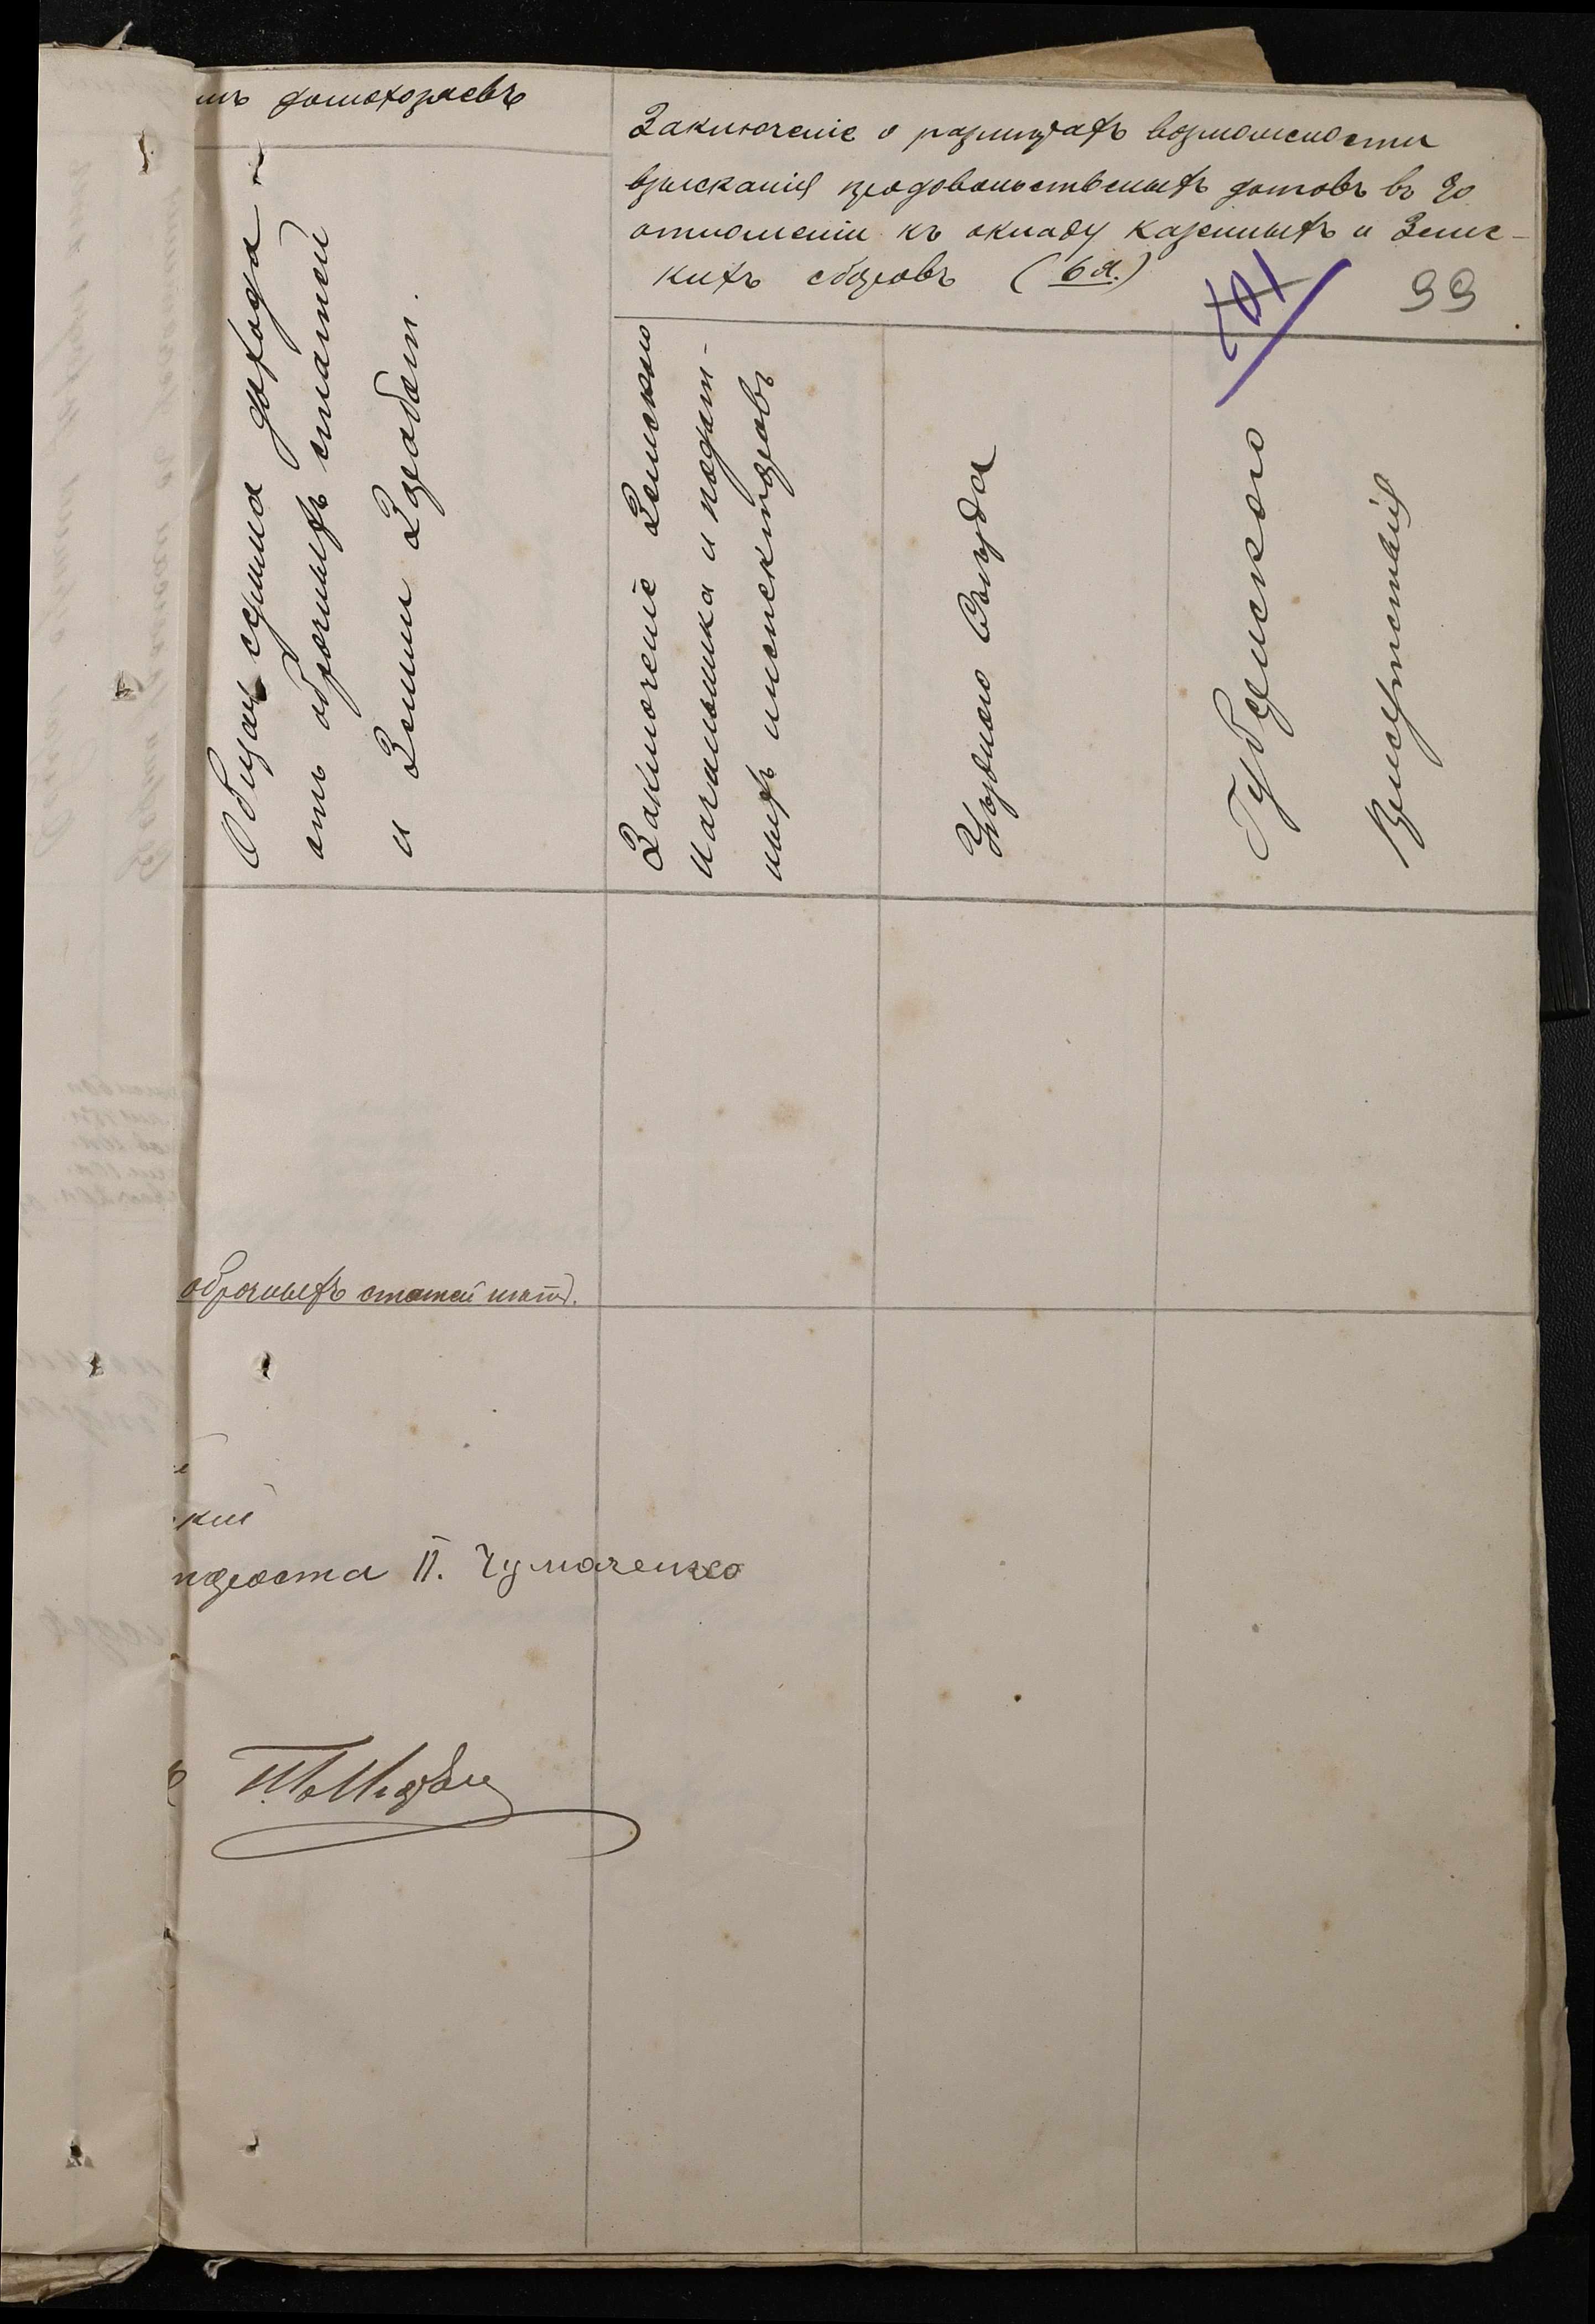 домохозяевъ
Заключеніе о размѣрахъ возможности
взысканія продовольственныхъ долговъ въ %
отношеніи къ окладу казенныхъ и Земс-
кихъ сборовъ (6 я.)
101
99
Общая сумма дохода
отъ оброчныхъ статей
и Земли Зараб.
Заключеніе Земскаго
Начальника и подат-
ныхъ инспекторовъ
Уѣзднаго Съѣзда
Губернскаго
Присутствія
оброчныхъ статей нѣтъ.
кій
роста П. Чумаченко